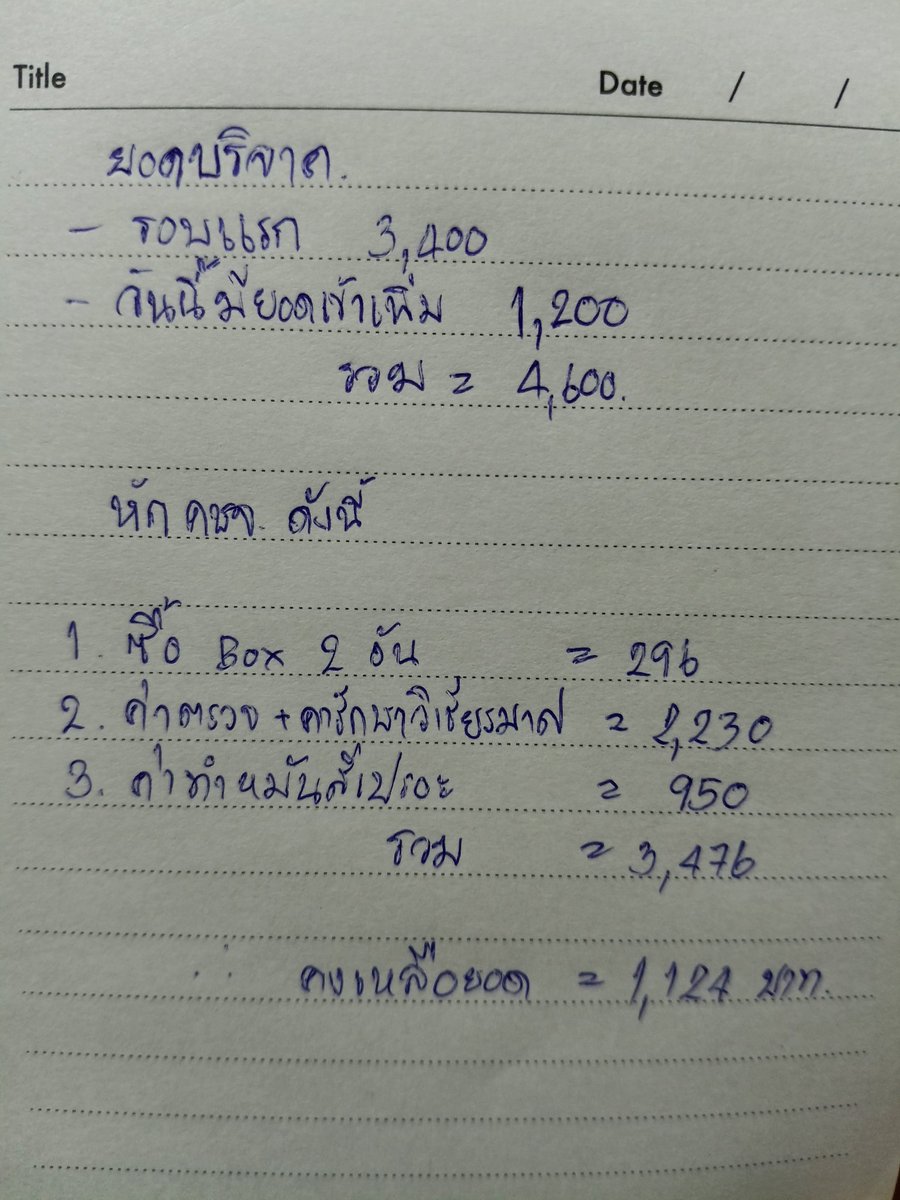 Title Date / /
ยอดบริจาค.
- รอบแรก 3,400
- วันนี้มียอดเข้าเพิ่ม 1,200
รวม = 4,600.
หัก คชจ. ดังนี้
1. ซื้อ Box 2 อัน = 296
2. ค่าตรวจ + คารักษาวิเชียรมาศ = 2,230
3. ค่าทำหมันสี่เปรอะ = 950
รวม = 3,476
∴ คงเหลือยอด = 1,124 บาท.